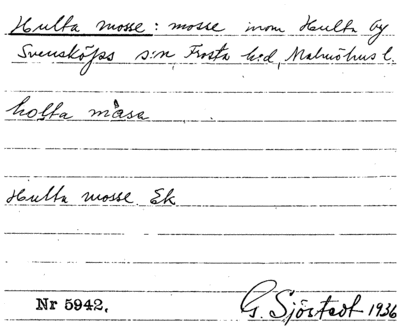 Hulta mosse: mosse inom Hulta by
Svensköps s:n, Frosta h:d, Malmöhus l.
holta måsa
Hulta mosse Ek
Nr 5942.
G. Sjöstedt 1936